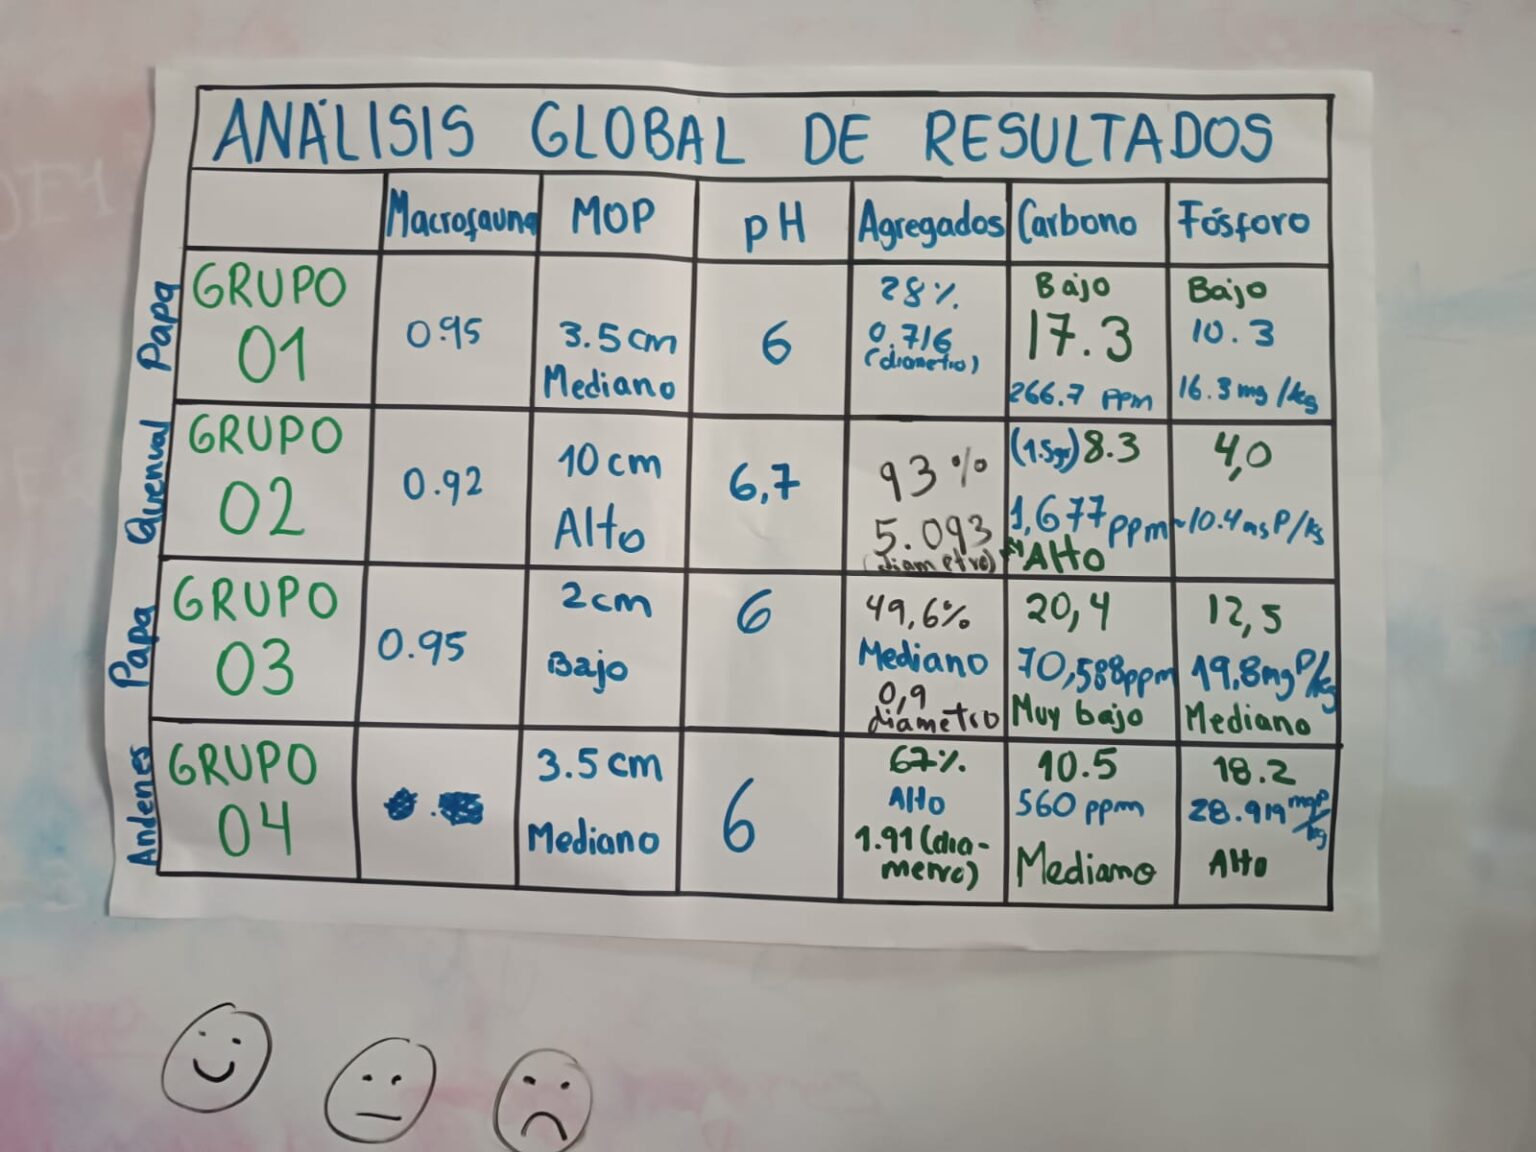 ANÁLISIS GLOBAL DE RESULTADOS
Macrofauna MOP pH Agregados Carbono Fósforo
Papa
GRUPO
01
0.95
3.5 cm
Mediano
6
28%
0.716
(diametro)
Bajo
17.3
266.7 ppm
Bajo
10.3
16.3 mg/kg
Quenual
GRUPO
02
0.92
10 cm
Alto
6,7
93%
5.093
(diametro)
(1.5gr) 8.3
1,677 ppm
Alto
4,0
~10.4 mg P/kg
Papa
GRUPO
03
0.95
2cm
Bajo
6
49,6%
Mediano
0,9
diametro
20,4
70,588 ppm
Muy bajo
12,5
19,8 mg P/kg
Mediano
Andenes
GRUPO
04
3.5 cm
Mediano
6
67%
Alto
1.91 (dia-
metro)
10.5
560 ppm
Mediano
18.2
28.919 mg P/kg
Alto